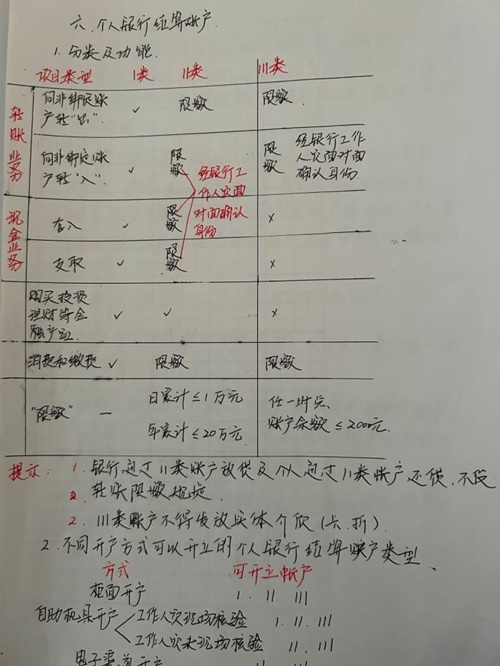 六、个人银行结算账户
1.分类及功能
项目类型 I类 II类 III类
转账业务
向非绑定账户转“出” ✓ 限额 限额
向非绑定账户转“入” ✓ 限额 限额 经银行工作人员面对面确认身份
经银行工作人员面对面确认身份
现金业务
存入 ✓ 限额 ×
支取 ✓ 限额 ×
购买投资理财等金融产品 ✓ ✓ ×
消费和缴费 ✓ 限额 限额
“限额” — 日累计≤1万元 年累计≤20万元 任一时点账户余额≤2000元
提示: 1. 银行通过II类账户放贷及个人通过II类账户还贷,不受
转账限额规定
2. III类账户不得发放实体介质(卡、折)
2.不同开户方式可以开立的个人银行结算账户类型
方式 可开立帐户
柜面开户 I. II. III
自助机具开户 工作人员现场核验 I. II. III
工作人员未现场核验 II. III
电子渠道开户